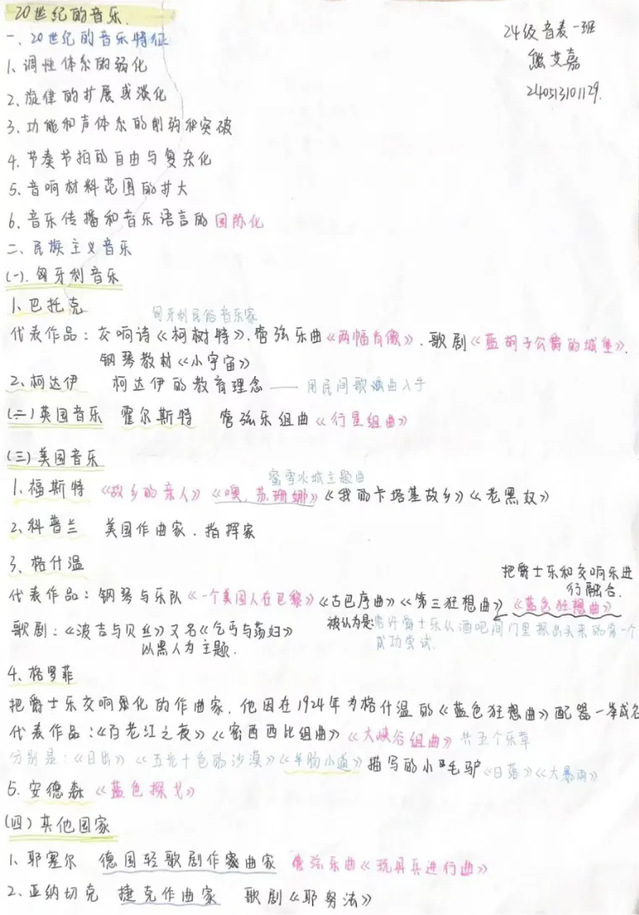 20世纪的音乐.
24级音表一班
熊艾嘉
240513101129.
一、20世纪的音乐特征
1、调性体系的弱化
2、旋律的扩展或淡化
3、功能和声体系的削弱和突破
4、节奏节拍的自由与复杂化
5、音响材料范围的扩大
6、音乐传播和音乐语言的国际化
二、民族主义音乐
(一).匈牙利音乐
1、巴托克 匈牙利民俗音乐家
代表作品：交响诗《柯树特》.管弦乐曲《两幅肖像》.歌剧《蓝胡子公爵的城堡》.
钢琴教材《小宇宙》
2、柯达伊 柯达伊的教育理念——用民间歌谣曲入手
(二)英国音乐 霍尔斯特 管弦乐组曲《行星组曲》
(三)美国音乐
蜜雪冰城主题曲
1、福斯特《故乡的亲人》《噢,苏珊娜》《我的卡塔基故乡》《老黑奴》
2、科普兰 美国作曲家.指挥家
3、格什温
把爵士乐和交响乐进行融合.
代表作品：钢琴与乐队《一个美国人在巴黎》《古巴序曲》《第三狂想曲》《蓝色狂想曲》
被认为是:
爵士乐从酒吧间门里探出头来的第一个成功尝试.
歌剧：《波吉与贝丝》又名《乞丐与荡妇》
以黑人为主题.
4、格罗菲
把爵士乐交响乐化的作曲家.他因在1924年为格什温的《蓝色狂想曲》配器一举成名
代表作品：《百老汇之夜》《密西西比组曲》《大峡谷组曲》共五个乐章
分别是：《日出》《五光十色的沙漠》《羊肠小道》描写的小毛驴《日落》《大暴雨》
5、安德森《蓝色探戈》
(四)其他国家
1、耶塞尔 德国轻歌剧作曲家 管弦乐曲《玩具兵进行曲》
2、亚纳切克 捷克作曲家 歌剧《耶努法》